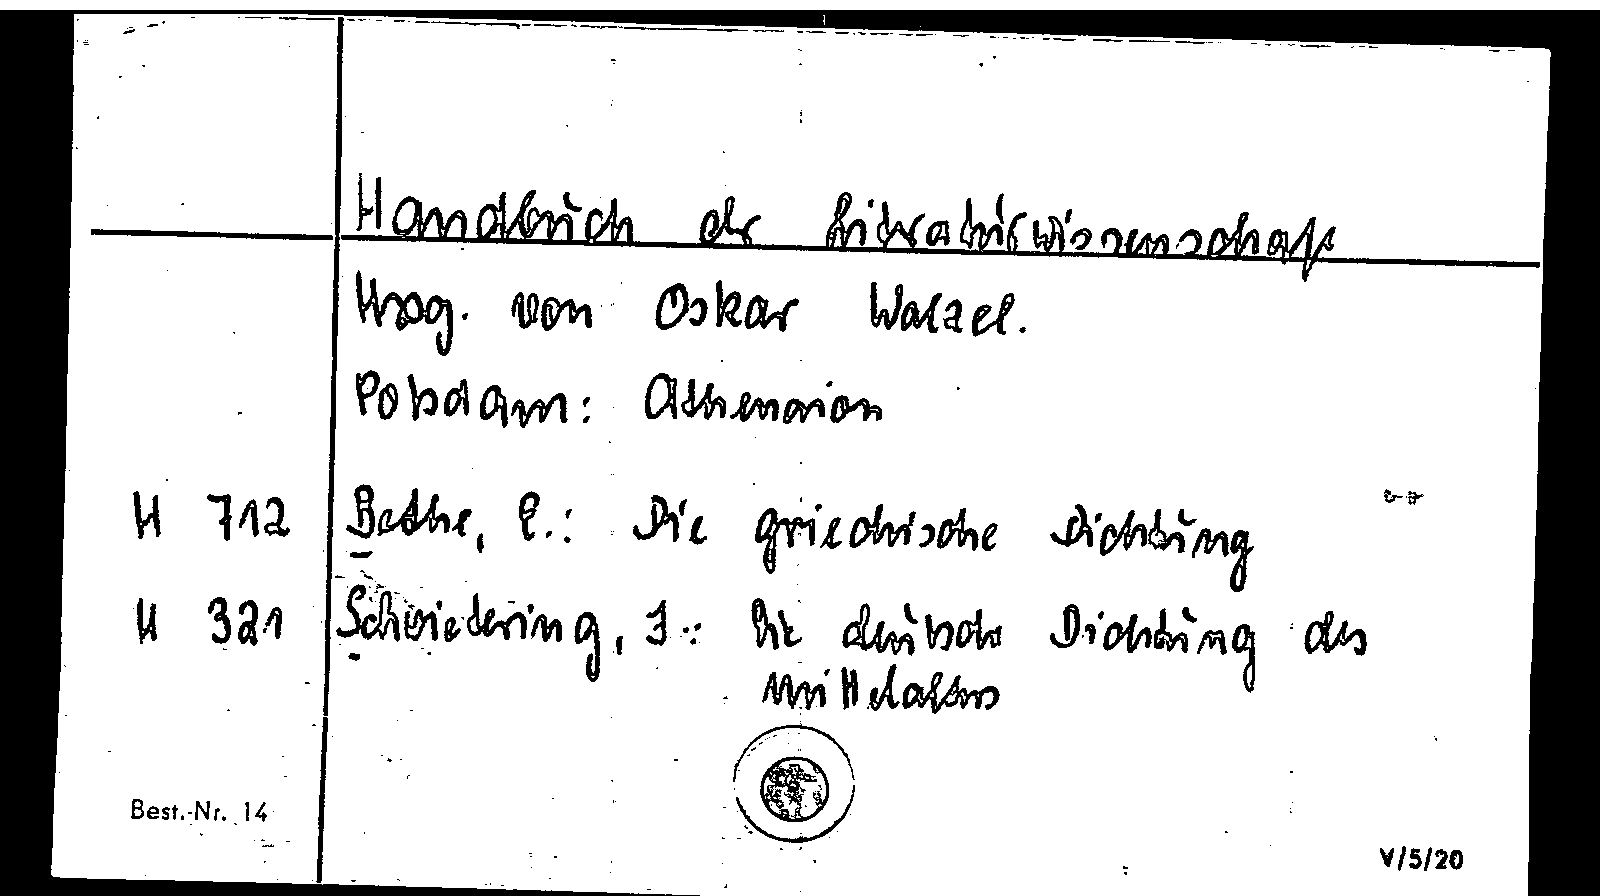 Handbuch der Literaturwissenschaft
Hrsg. von Oskar Walzel.
Potsdam: Athenaion
H 712 Bethe, E.: Die griechische Dichtung
H 321 Schwietering, J.: Die deutsche Dichtung des
Mittelalters
Best.-Nr. 14
V/5/20